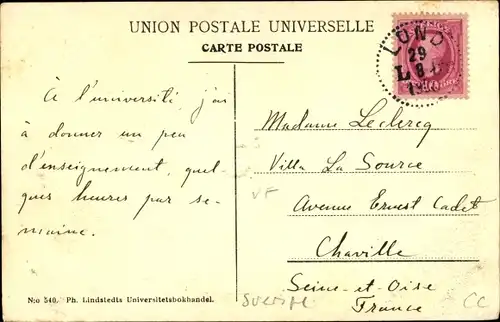 UNION POSTALE UNIVERSELLE
CARTE POSTALE
LUND
29
L
À l'université, j'ai
à donner un peu
d'enseignement, quel-
ques heures par se-
maine.
Madame Leclercq
Villa La Source
Avenue Ernest Cadet
Chaville
Seine-et-Oise
France
VF
N:o 540. Ph. Lindstedts Universitetsbokhandel.
CC